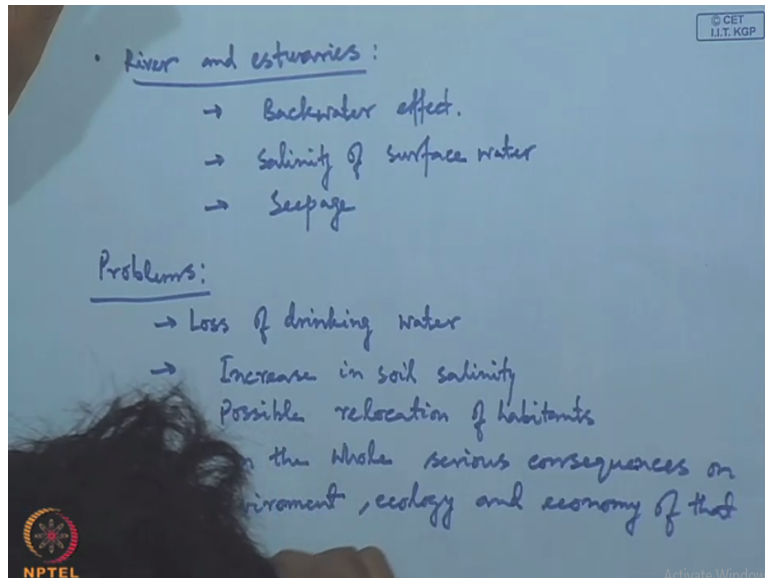 © CET
I.I.T. KGP
• River and estuaries:
→ Backwater effect.
→ Salinity of surface water
→ Seepage
Problems:
→ Loss of drinking water
→ Increase in soil salinity
Possible relocation of habitants
the whole serious consequences on
, ecology and economy of that
NPTEL
Activate Window